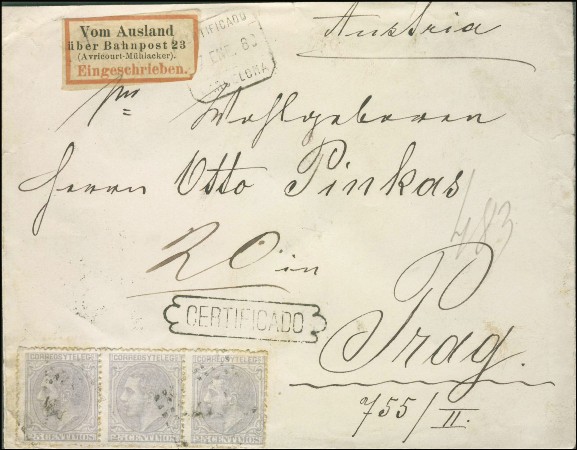 Vom Ausland
über Bahnpost 23
(Avricourt-Mühlacker).
Eingeschrieben.
CERTIFICADO
ENE 8
BARCELONA
Austria
Wohlgeboren
Herrn Otto Pinkas
20 in
483
CERTIFICADO
Prag.
755/II.
CORREOS Y TELEGS
CORREOS Y TELEGS
CORREOS Y TELEGS
25 CENTIMOS
25 CENTIMOS
25 CENTIMOS